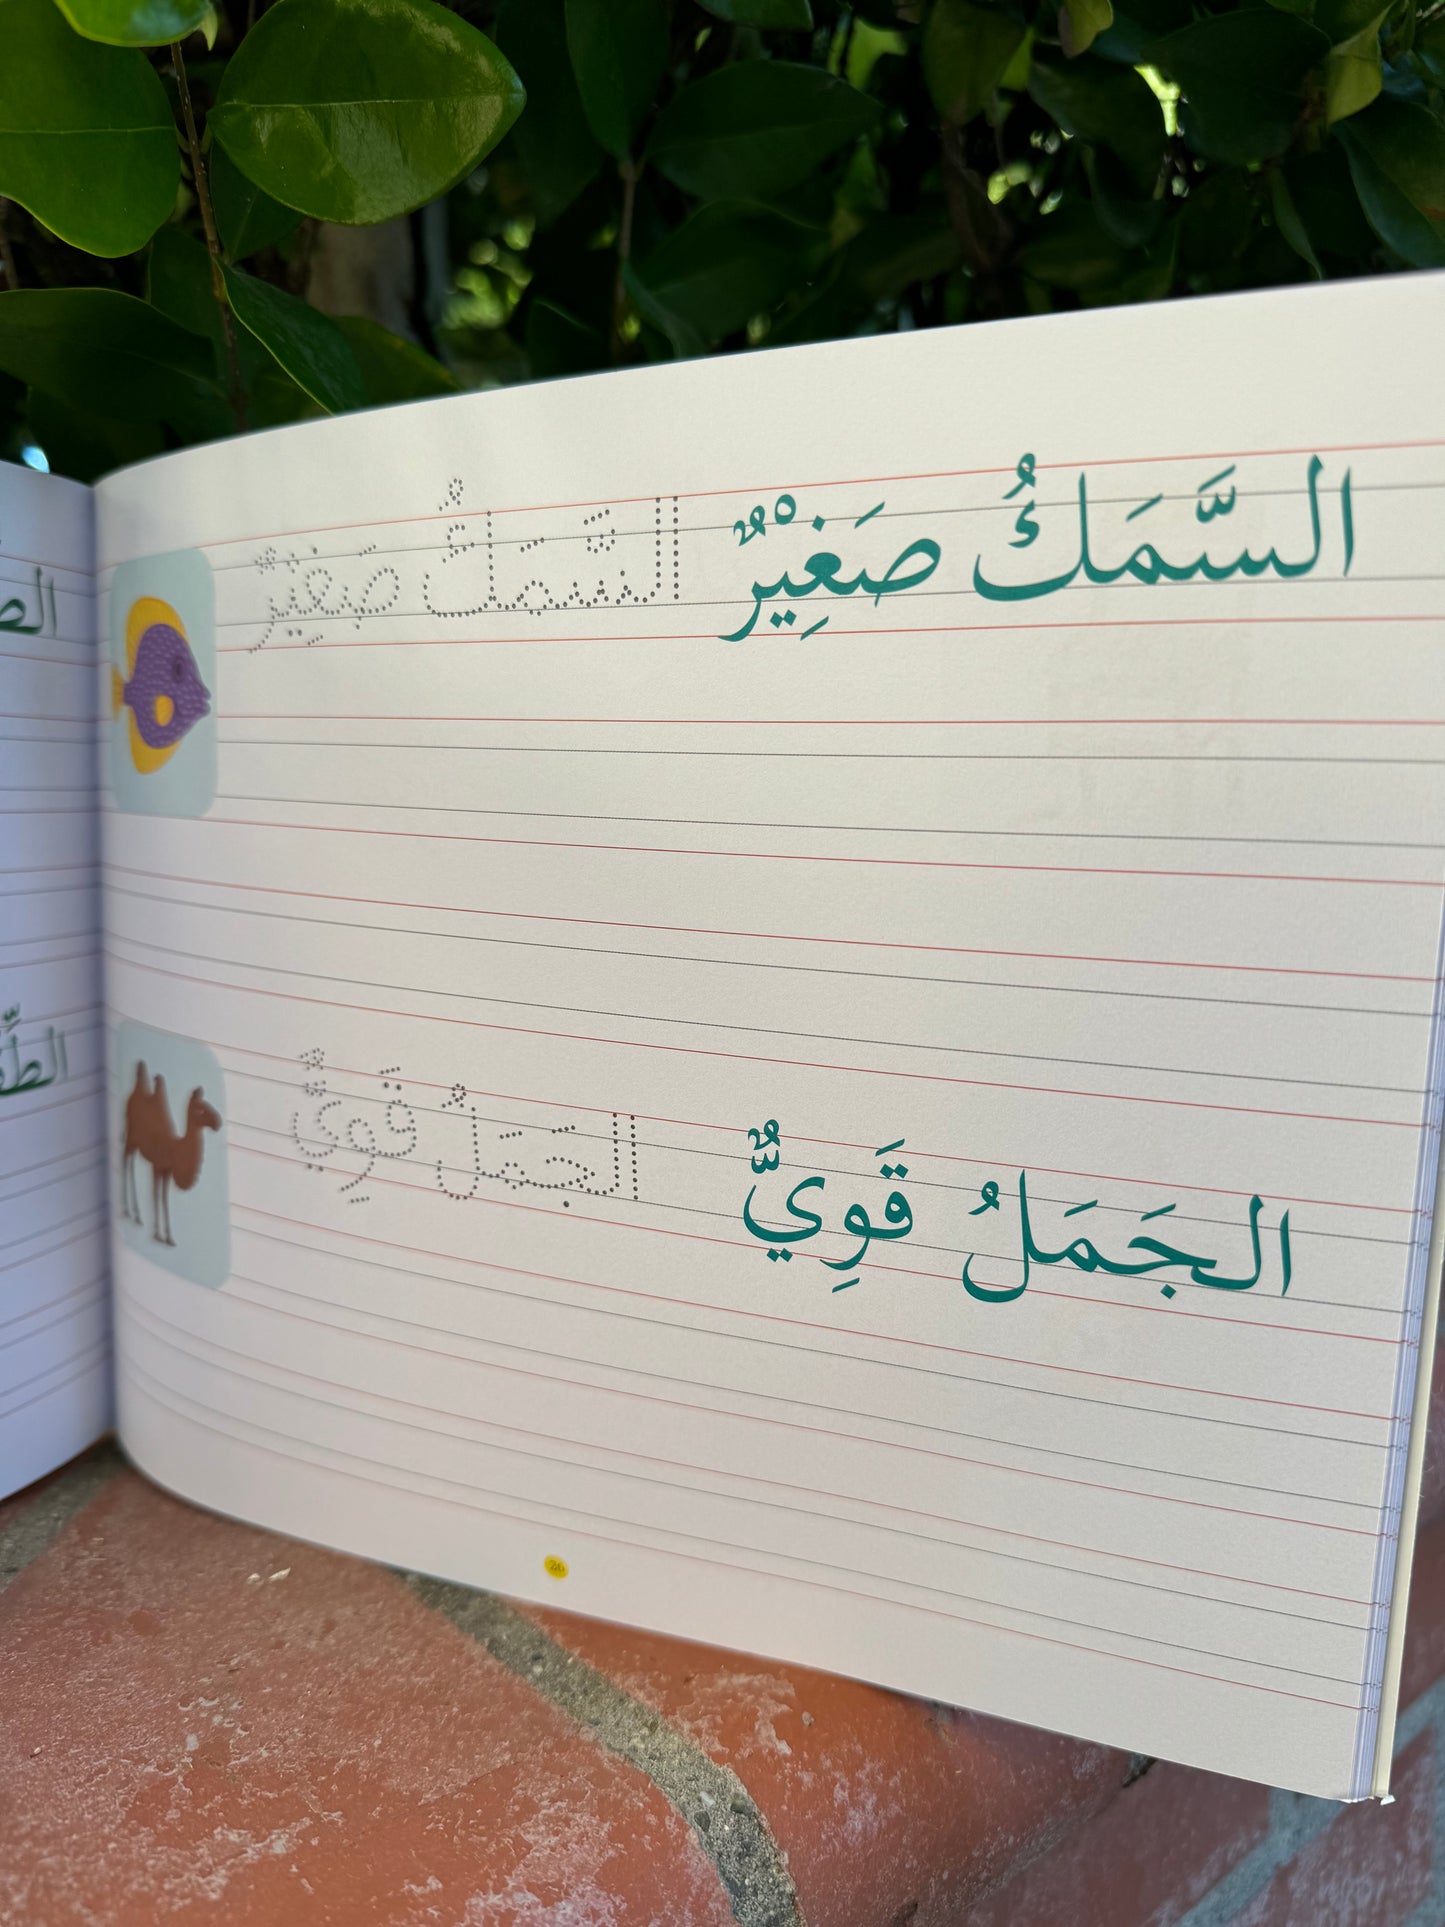 السَّمَكُ صَغِيْرٌ السَّمَكُ صَغِيْرٌ
الجَمَلُ قَوِيٌّ الجَمَلُ قَوِيٌّ
26